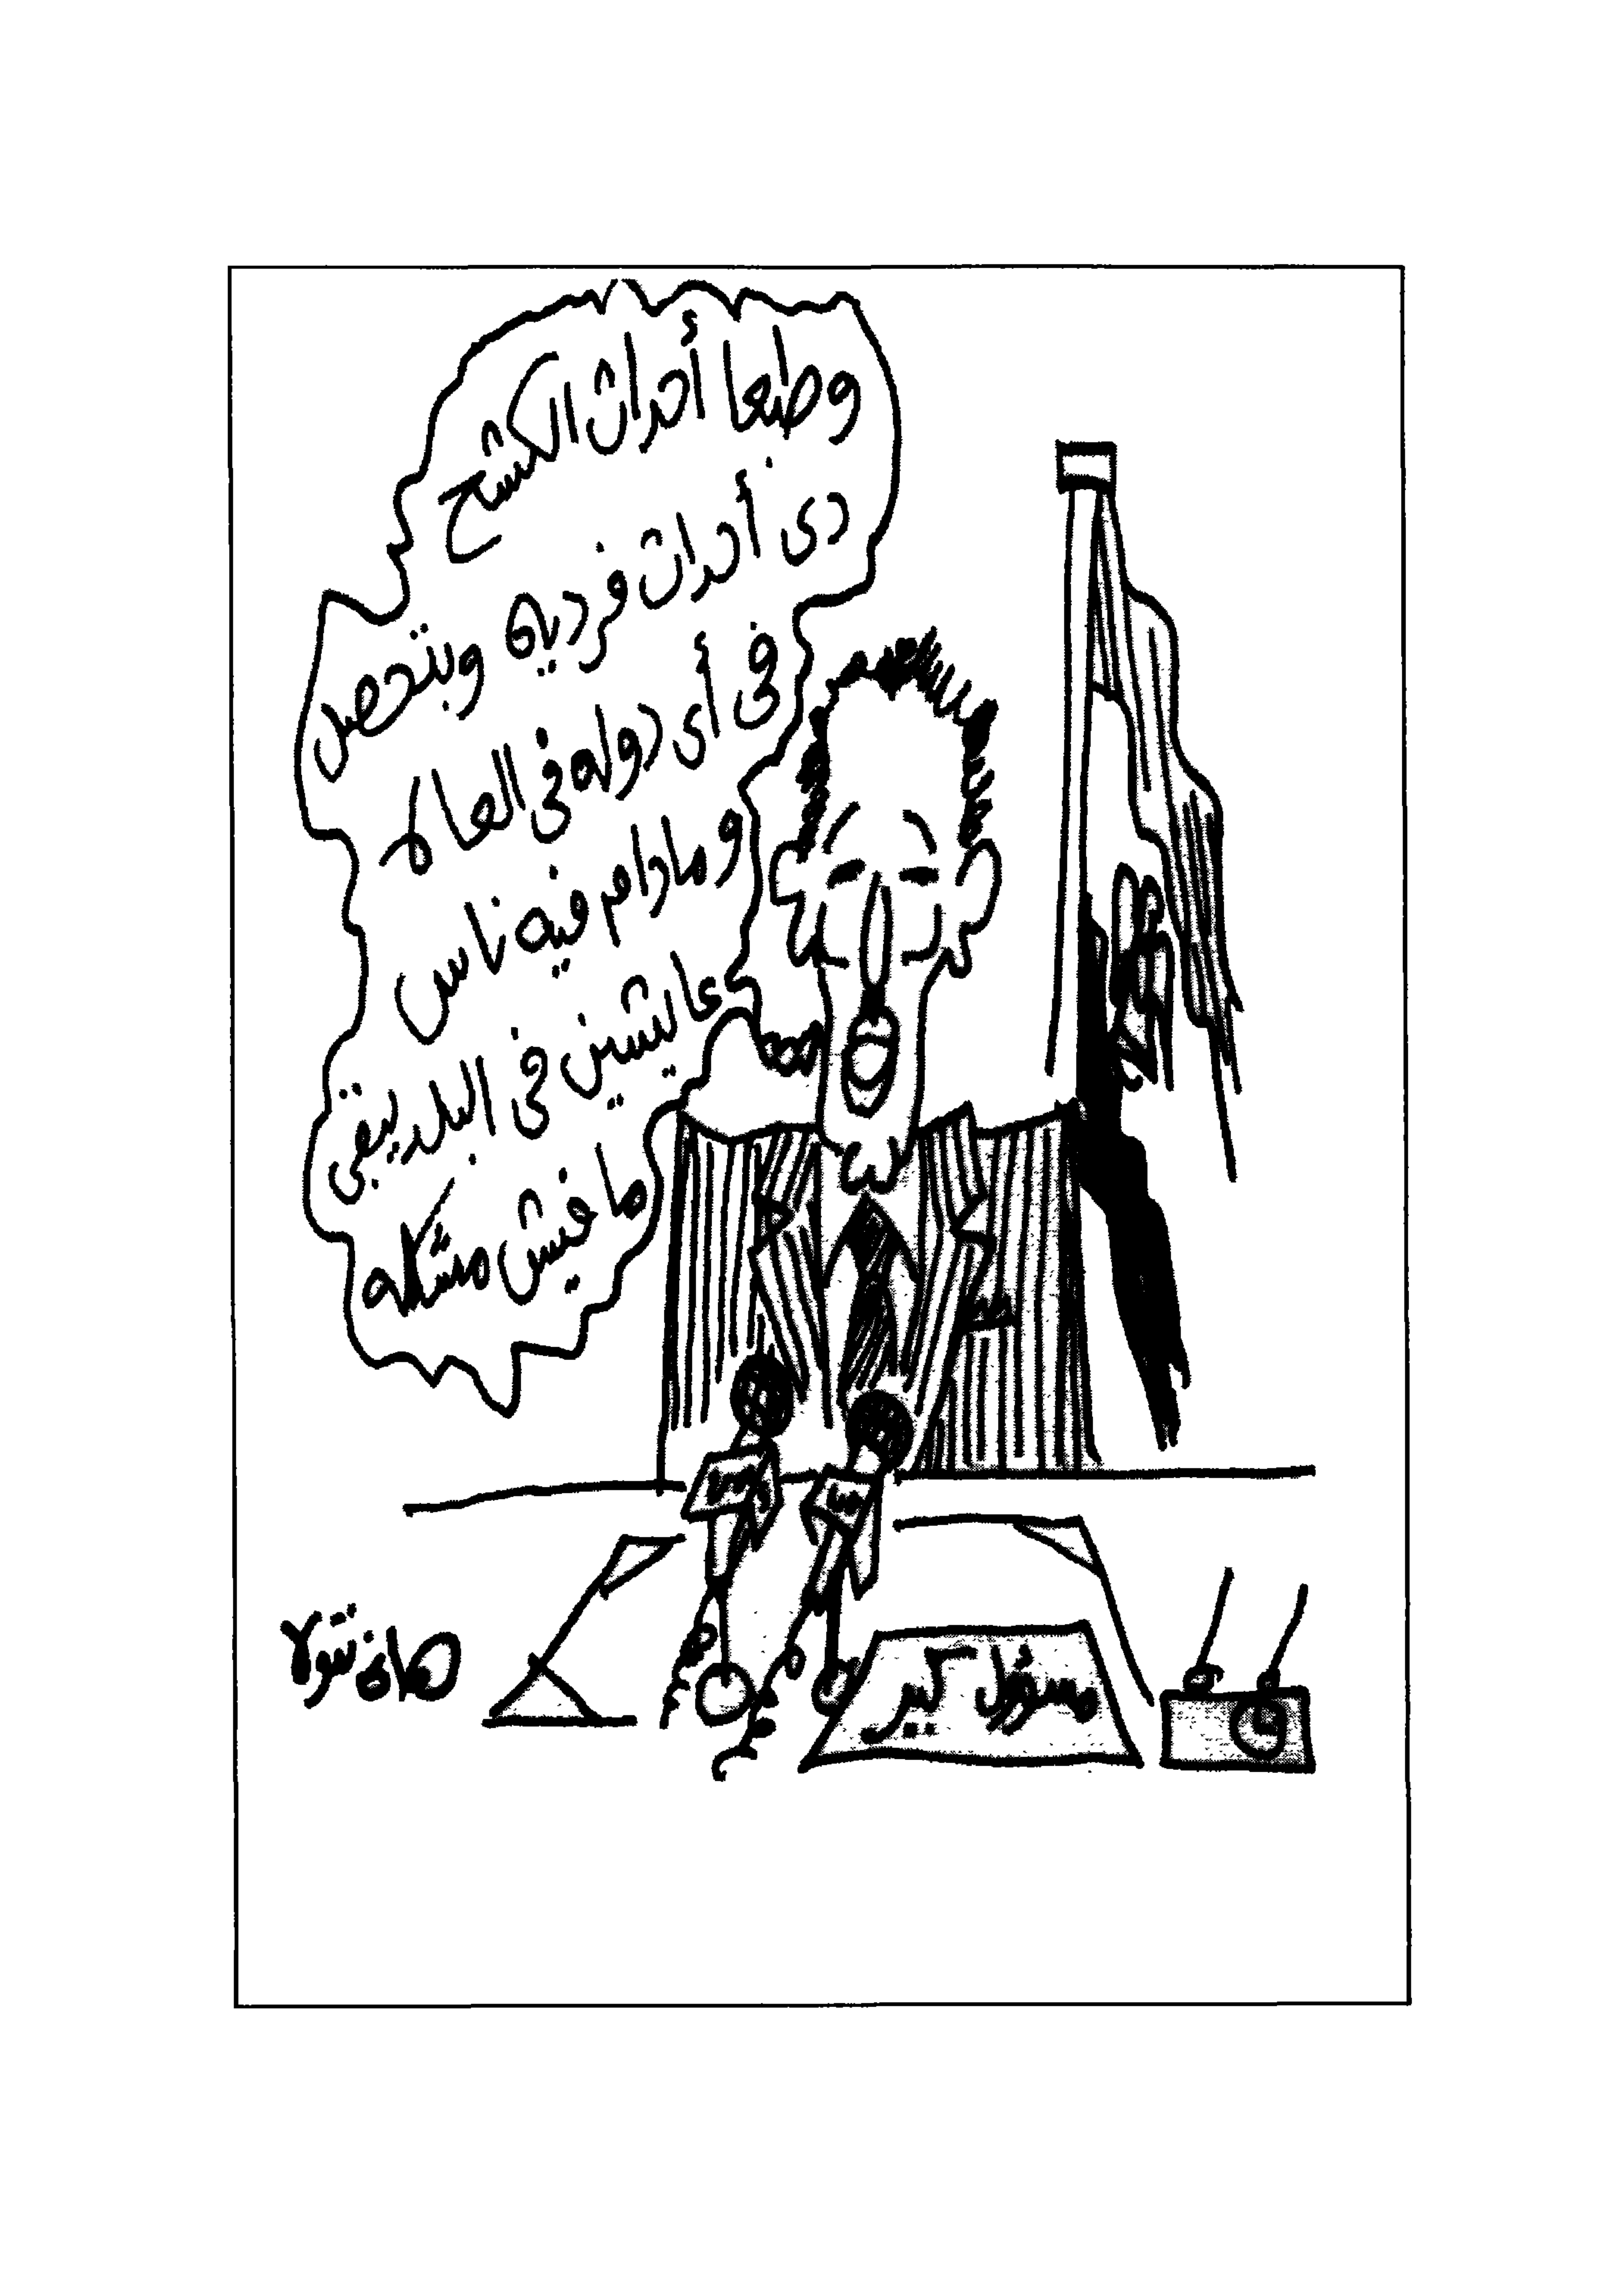 وطبعا أحداث الكشح
دى أحداث فرديه وبتحصل
فى أى دوله فى العالم
ومادام فيه ناس
عايشين فى البلد يبقى
مافيش مشكله
مسئول كبير